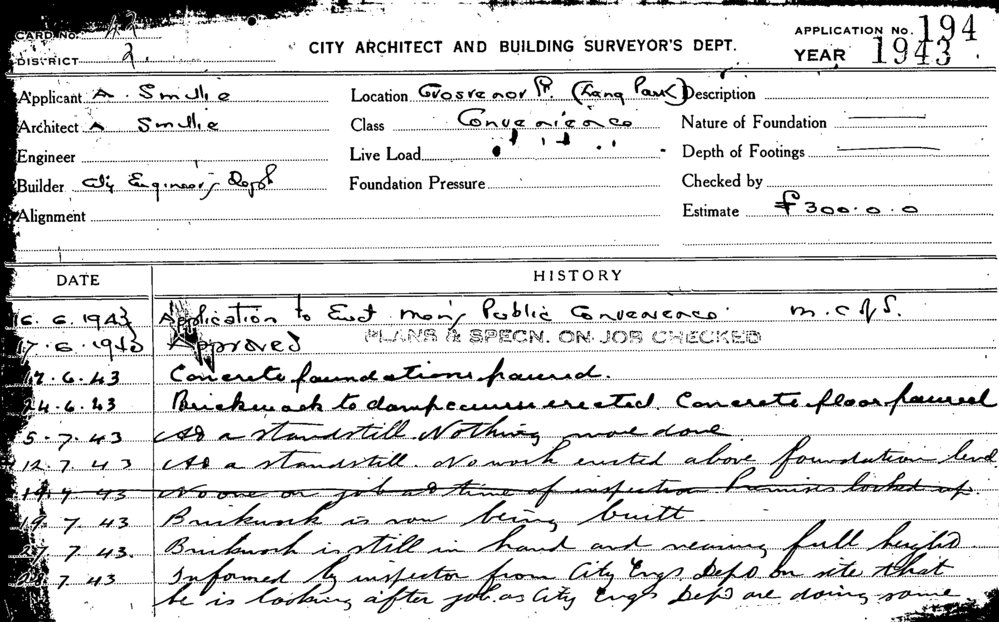 CARD No. 42
DISTRICT 2.
CITY ARCHITECT AND BUILDING SURVEYOR'S DEPT.
APPLICATION No. 194
YEAR 1943
Applicant A. Smillie
Architect A Smillie
Engineer
Builder City Engineer's Dept
Alignment
Location Grosvenor Pl. (Lang Park)
Class Convenience
Live Load
Foundation Pressure
Description
Nature of Foundation
Depth of Footings
Checked by
Estimate £300.0.0
DATE HISTORY
16.6.1943 Application to Erect Men's Public Convenience.
17.6.1943 Approved PLANS & SPECN. ON JOB CHECKED
17.6.43 Concrete foundations poured.
24.6.43 Brickwork to dampcourse erected. Concrete floor poured
5.7.43 At a standstill. Nothing more done
12.7.43 At a standstill. No work erected above foundation level
19.7.43 No one on job at time of inspection Premises locked up.
19.7.43 Brickwork is now being built.
27.7.43. Brickwork is still in hand and nearing full height.
7.43 Informed by inspector from City Engs. Dept on site that
he is looking after job. as City Engs Dept are doing same